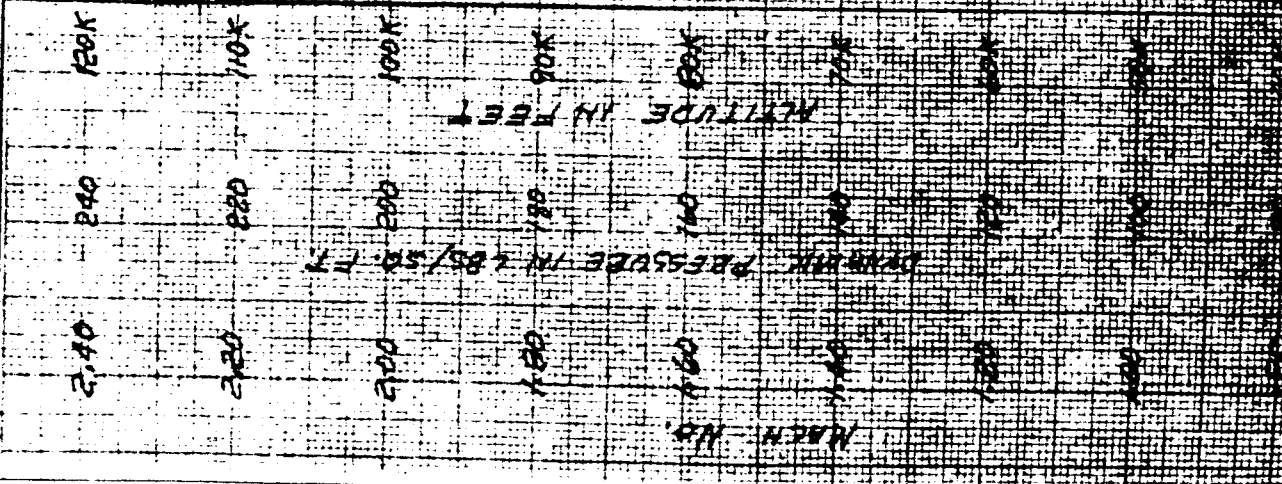 120K
110K
100K
90K
80K
70K
60K
ALTITUDE IN FEET
240
220
200
180
160
140
120
100
DYNAMIC PRESSURE IN LBS/SQ. FT.
2.40
2.20
2.00
1.80
1.60
1.40
1.20
1.00
MACH NO.